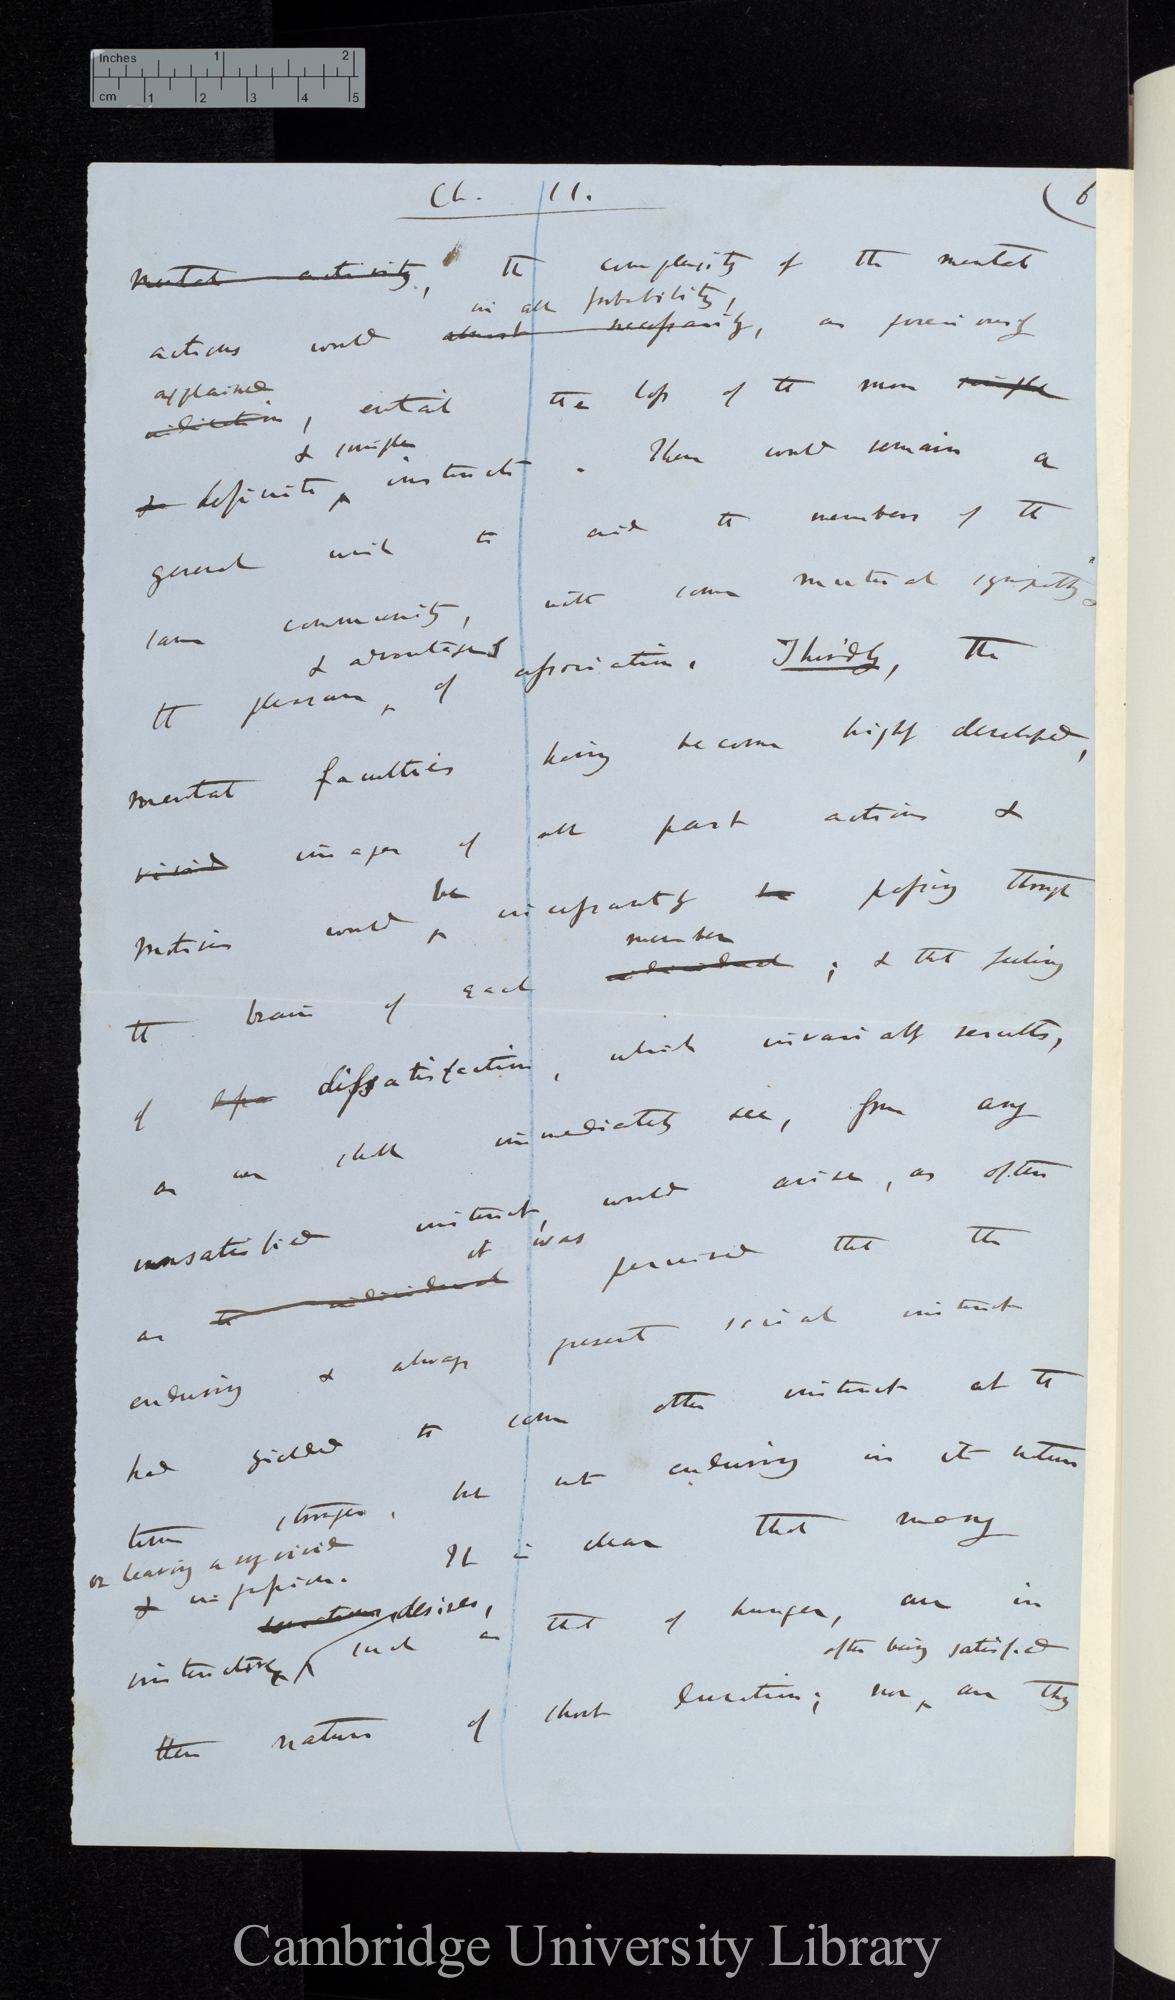 Inches 1 2
cm 1 2 3 4 5
Ch. 11. (6
mental activity, the complexity of the mental
in all probability,
actions would almost necessarily, as previously
explained
indication, entail the loss of the more simple
& simple
& definite instincts. There would remain a
general wish to aid the members of the
same community, with some mutual sympathy &
& advantages
the pleasure of association. Thirdly, the
mental faculties having become highly developed,
vivid images of all past actions &
be
motives would incessantly be passing through
member
the brain of each individual; & that feeling
of dissatisfaction, which invariably results,
as we shall immediately see, from any
unsatisfied instinct, would arise, as often
it was
as the individual perceived that the
enduring & always present social instinct
had yielded to some other instinct at the
time stronger, but not enduring in its nature
or leaving a very vivid
& impression. It is clear that many
desires,
instinctive such as that of hunger, are in
after being satisfied
their nature of short duration; nor are they
Cambridge University Library